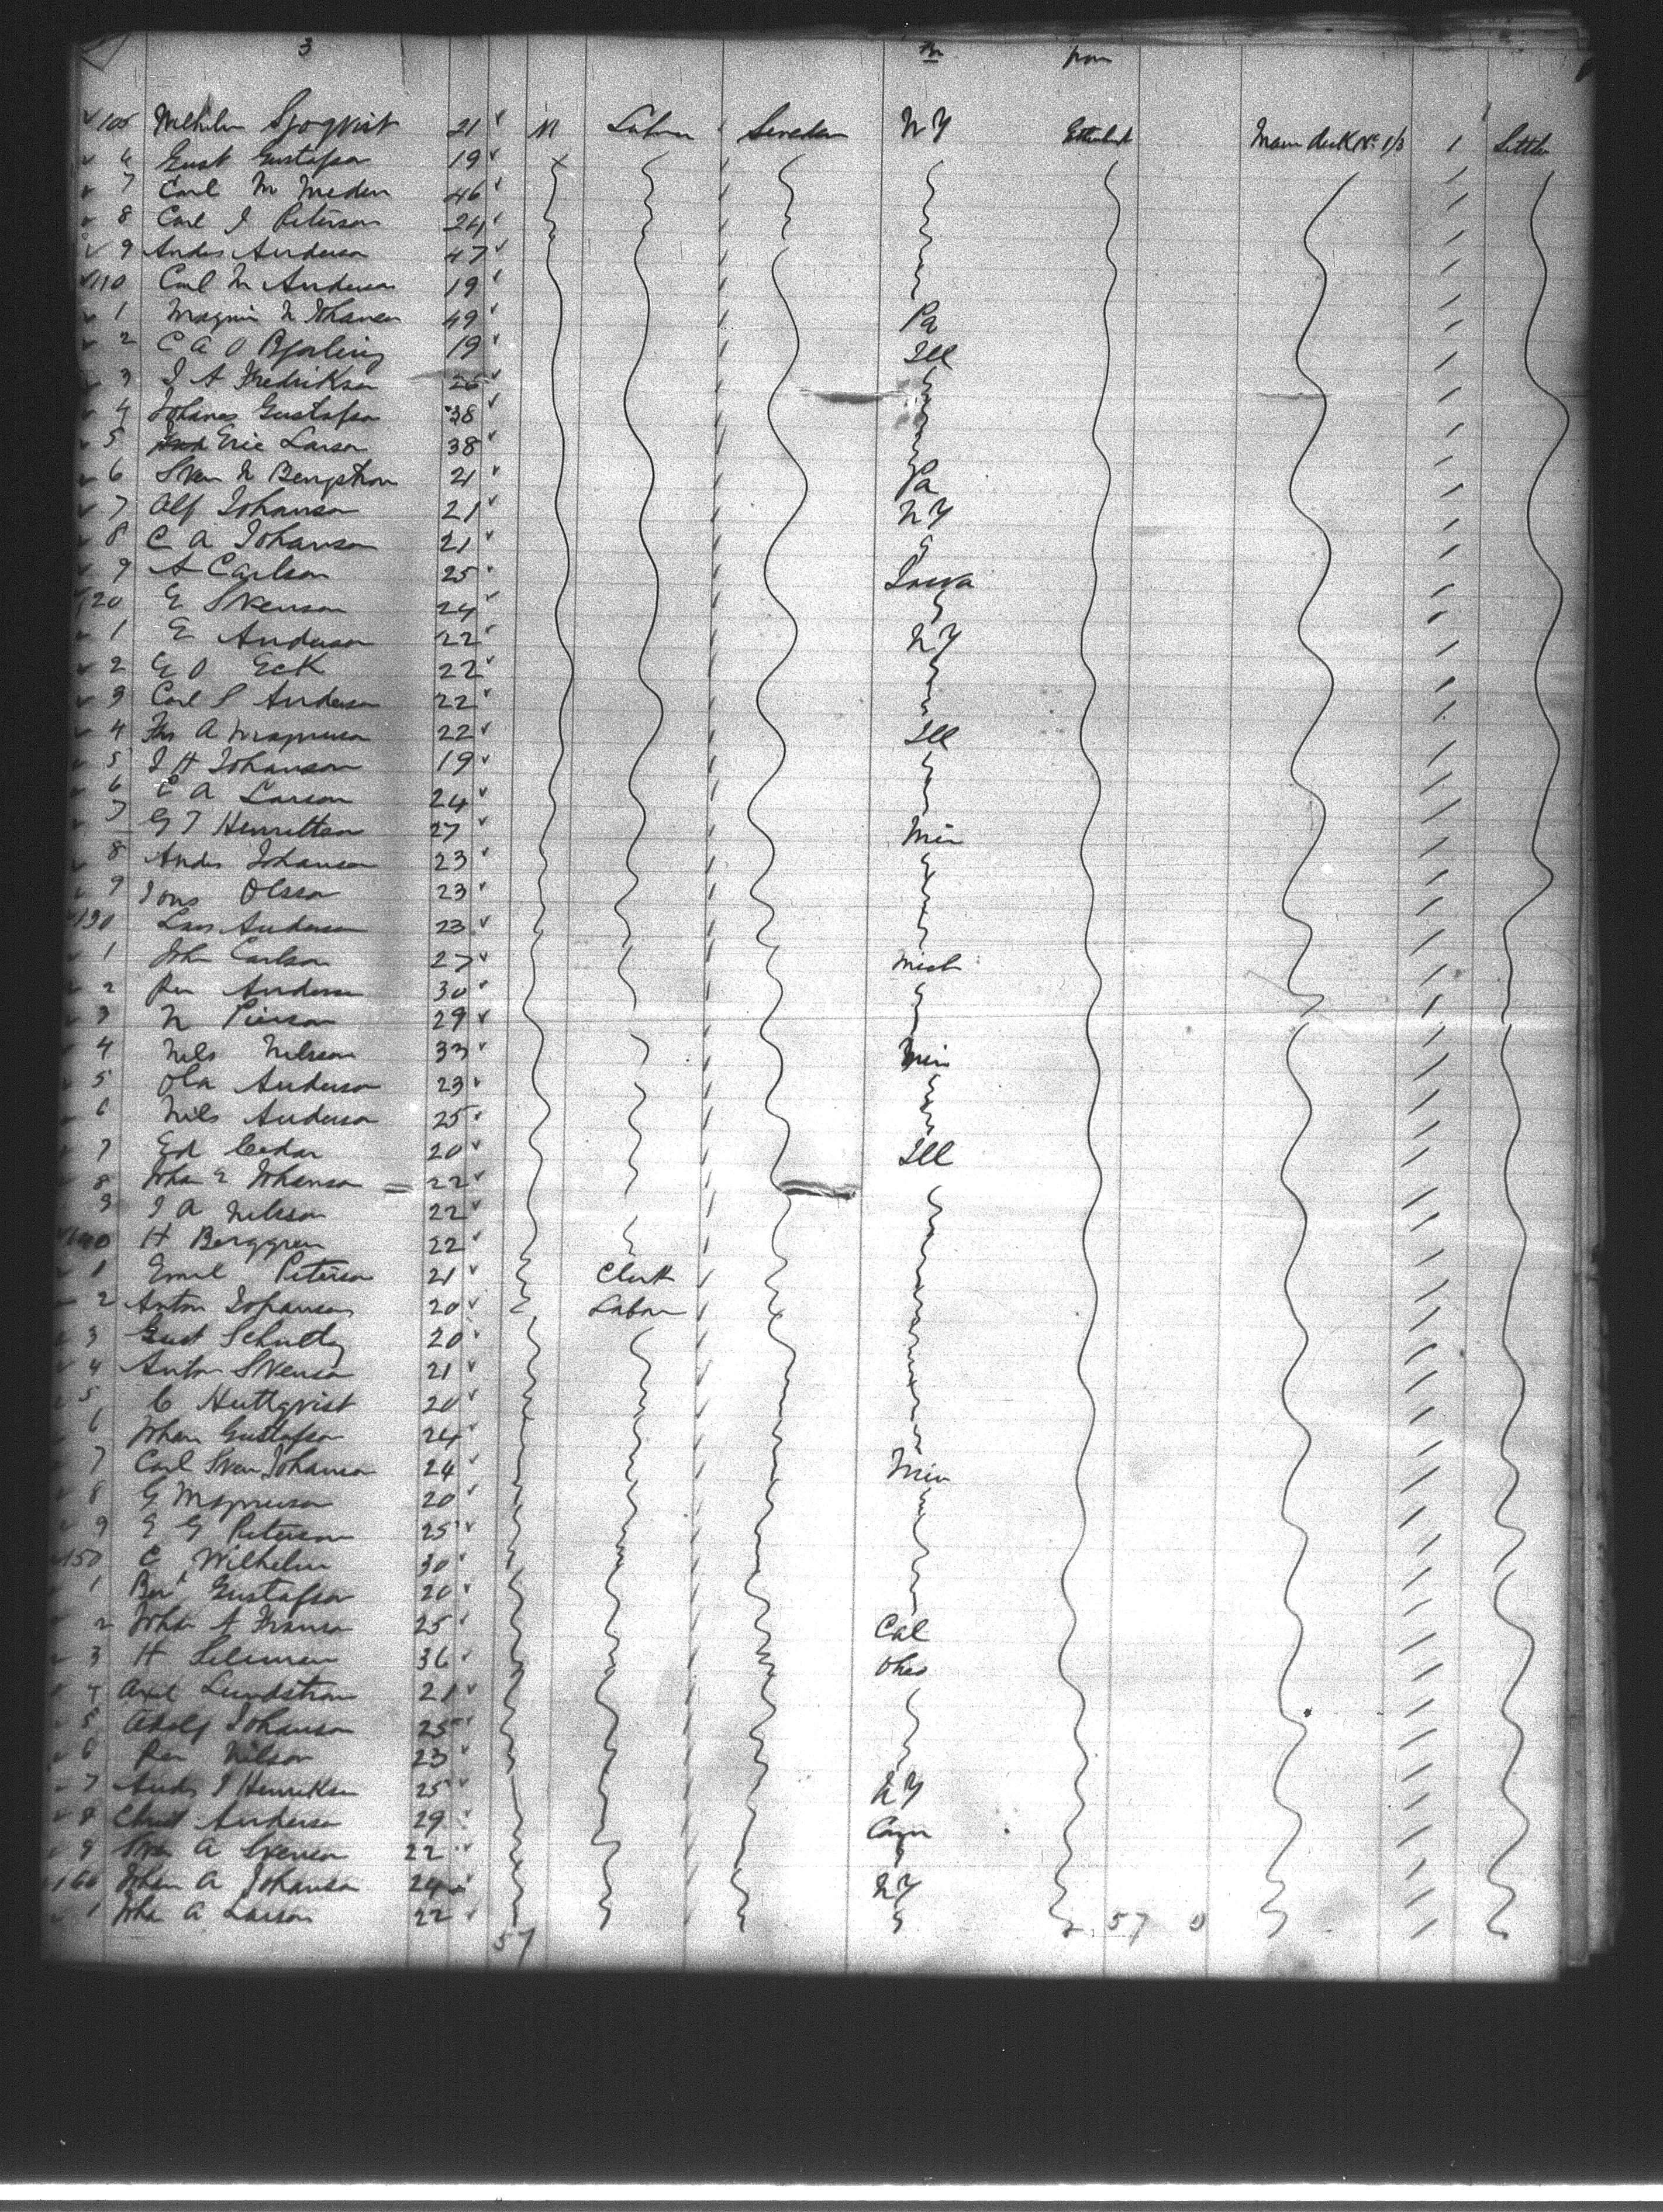 3
105 Wilhelm Sjoqvist 21 M Labor Sweden NY Main deck No 1/3 1 Settler
6 Gust Gustafson 19
7 Carl M 46
8 Carl J Peterson 24
9 Andrs Anderson 47
110 Carl M Anderson 19
1 Magnus N Johanson 49 Pa
2 C A O Bjorling 19 Ill
3 J A Fredrikson 26
4 Johanes Gustafson 38
5 Eric Larson 38
6 Sven N Bengtson 21 Pa
7 Alf Johanson 21 NY
8 C A Johanson 21
9 A Carlson 25 Iowa
120 E Svenson 24
1 E Anderson 22 NY
2 E O Eck 22
3 Carl S Anderson 22
4 A Magnuson 22 Ill
5 J H Johanson 19
6 E A Larson 24
7 G T 27 Min
8 Andrs Johanson 23
9 Jons Olsson 23
130 Lars Anderson 23
1 John Carlson 27 Mich
2 Per Anderson 30
3 N Pierson 29
4 Nils Nilsson 33 Min
5 Ola Anderson 23
6 Nils Anderson 25
7 Ed Cedar 20 Ill
8 Johan E Johanson 22
9 J A Nilsson 22
140 H Berggren 22
1 Emil Peterson 21 Clerk
2 Anton Johanson 20 Labor
3 Gust Schultz 20
4 Anton Svenson 21
5 C Hultqvist 20
6 Johan Gustafson 24
7 Carl Sven Johanson 24 Min
8 G Magnuson 20
9 E G Peterson 25
150 C Wilhelm 30
1 Gustafson 20
2 Johan A Franson 25 Cal
3 H 36 Ohio
4 Axel Lundstrom 21
5 Adolf Johanson 25
6 Per Nilson 23
7 Andrs J Henrikson 25 NY
8 Christ Anderson 29
9 Sven A Svenson 22
160 Johan A Johanson 24 NY
1 Johan A Larson 22
57 57 0